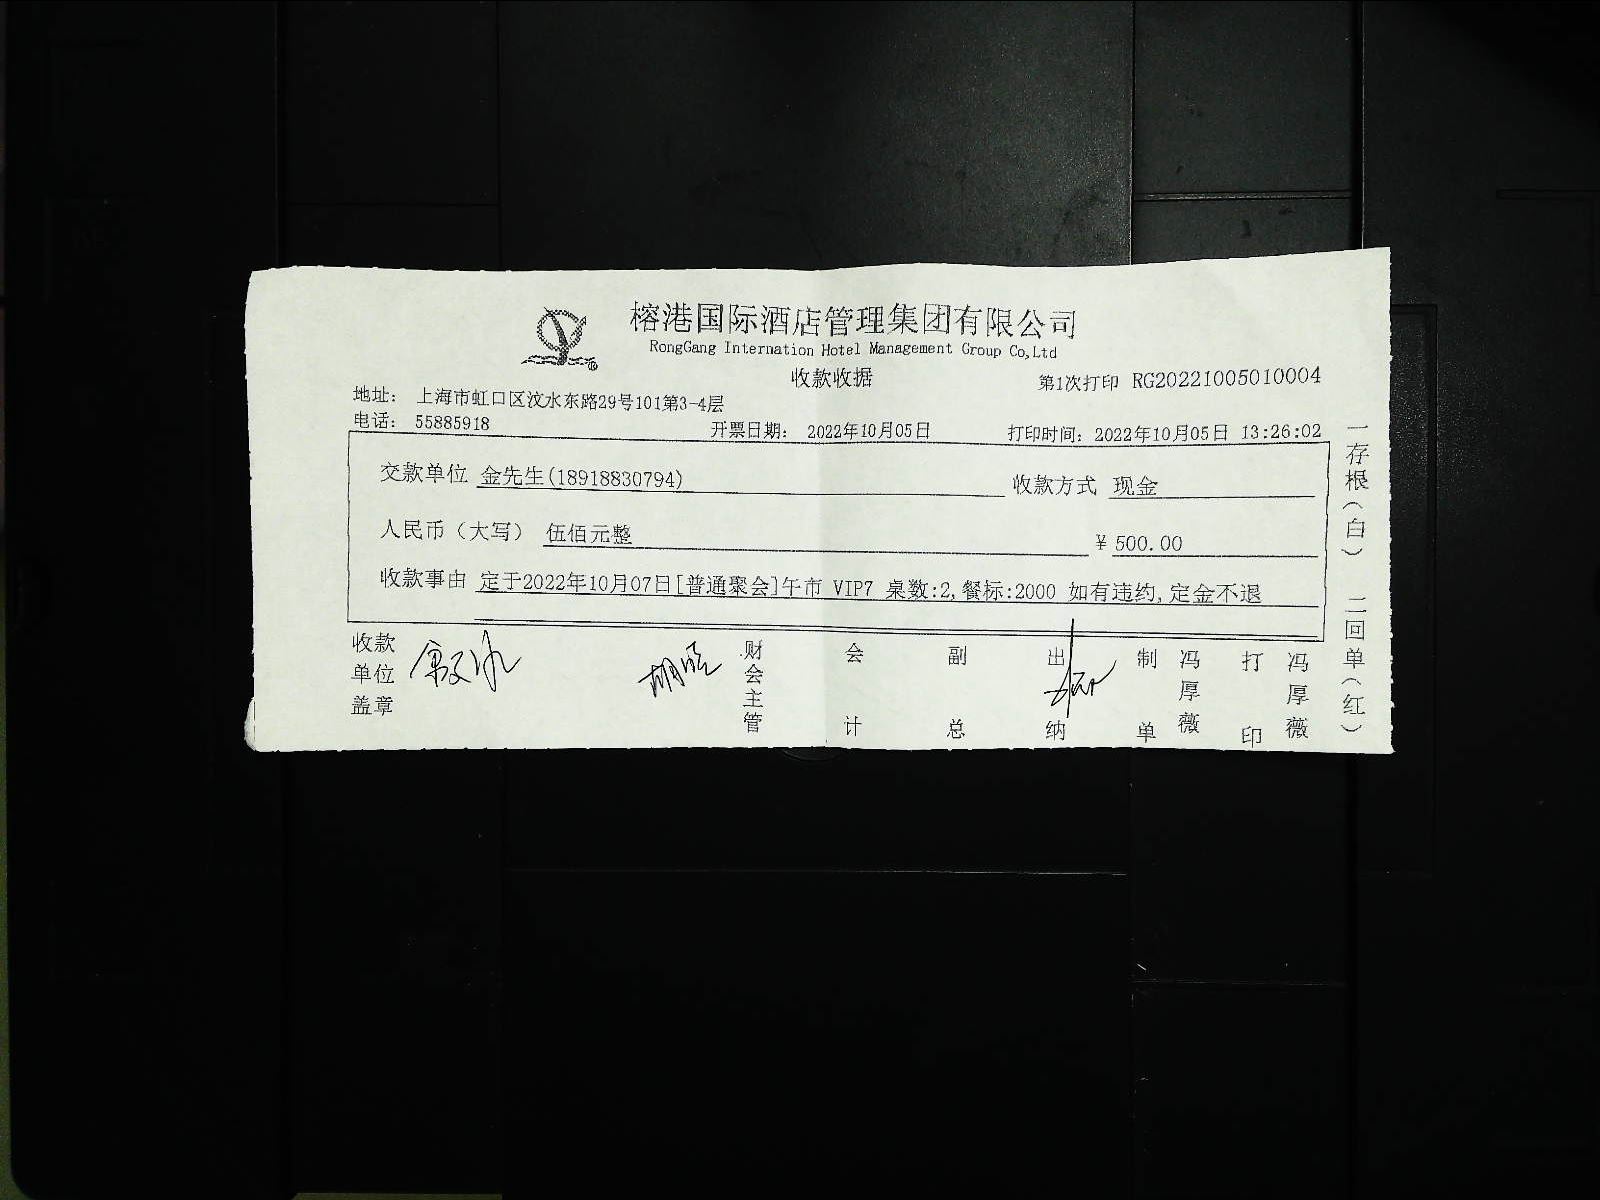 榕港国际酒店管理集团有限公司
RongGang Internation Hotel Management Group Co,Ltd
收款收据
第1次打印 RG20221005010004
地址： 上海市虹口区汶水东路29号101第3-4层
电话： 55885918 开票日期： 2022年10月05日 打印时间：2022年10月05日 13:26:02
交款单位 金先生(18918830794) 收款方式 现金
人民币（大写） 伍佰元整 ¥ 500.00
收款事由 定于2022年10月07日[普通聚会]午市 VIP7 桌数:2,餐标:2000 如有违约,定金不退
收款单位盖章
财会主管
会计
副总
出纳
制单 冯厚薇
打印 冯厚薇
一存根（白） 二回单（红）